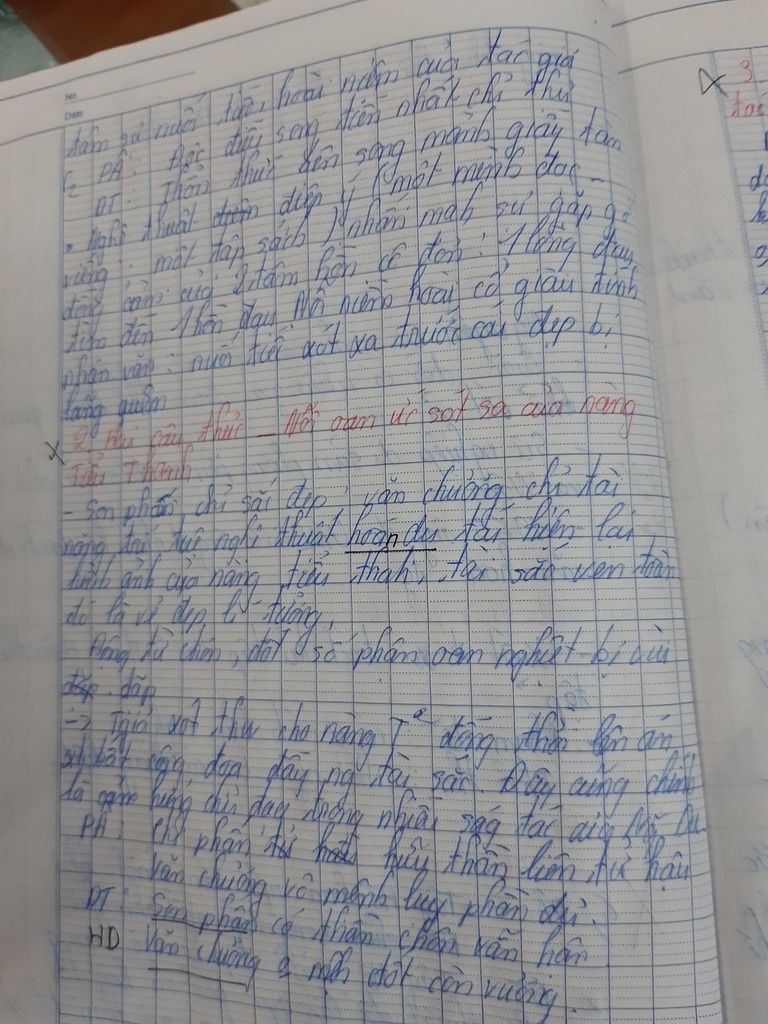 No.
Date
tâm sự nuối tiếc, hoài niệm của tác giả
PÂ: Độc điếu song tiền nhất chỉ thư
DT: Thổn thức bên song mảnh giấy tàn
• Nghệ thuật điệp ý (một mình đọc
viếng : một tập sách) nhấn mạh sự gặp gỡ
đồng cảm của 2 tâm hồn cô đơn : 1 lòng đau
tìm đến 1 hồn đau Nỗi niềm hoài cổ giàu tính
nhân văn : nuối tiếc xót xa trước cái đẹp bị
lãng quên
x 2. Hai câu thực - Nỗi oan ức sót sa của nàng
Tiểu Thanh
- Son phấn chỉ sắc đẹp, văn chương chỉ tài
năng trí tuệ nghệ thuật hoán dụ tái hiện lại
hình ảnh của nàng tiểu thah, tài sắc vẹn toàn
đó là vẻ đẹp lí tưởng,
- Động từ chôn, đốt số phận oan nghiệt bị vùi
dập
-> Tgiả xót thư cho nàng T² đồng thời lên án
sự bất công đoạ đầy ng tài sắc. Đây cũng chính
là cảm hứng chủ đạo trong nhiều ság tác của Ng Du.
PÂ: Chi phấn hữu thần liên tử hậu
Văn chương vô mệnh luỵ phần dư.
DT: Son phấn có thần chôn vẫn hận
HD Văn chương o mệh đốt còn vương.
x 3